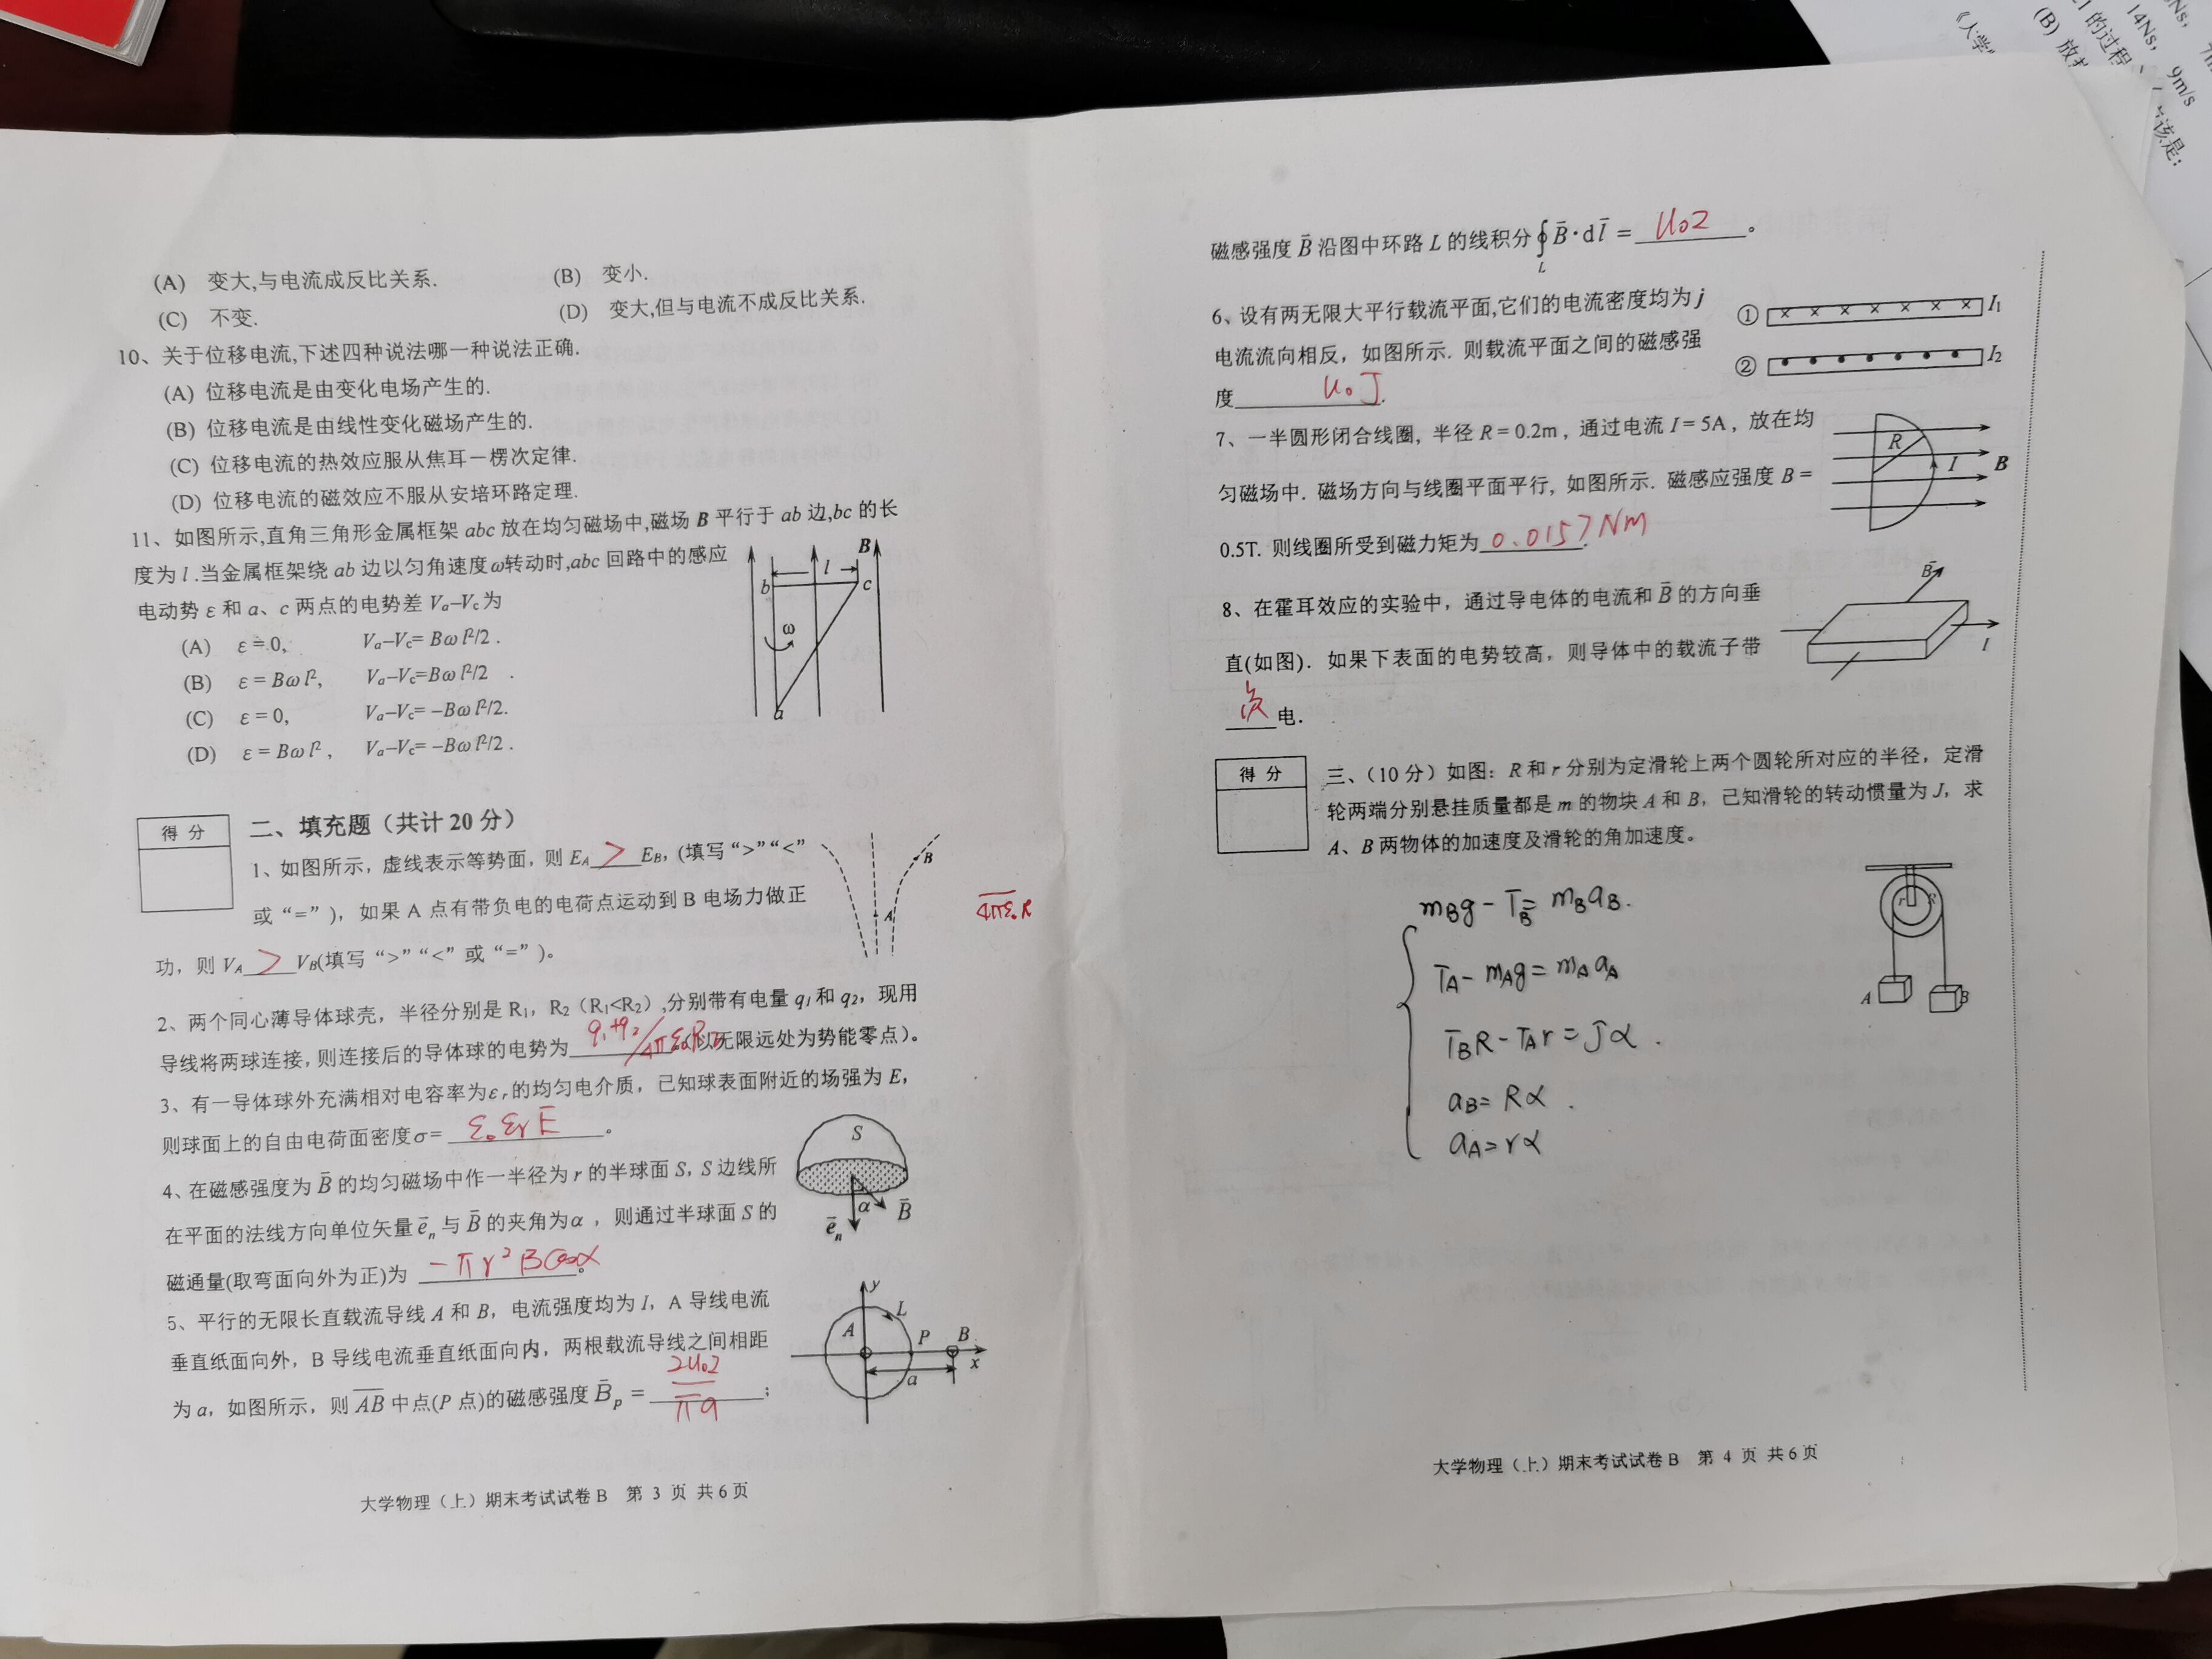 (A) 变大,与电流成反比关系.
(B) 变小.
(C) 不变.
(D) 变大,但与电流不成反比关系.
10、关于位移电流,下述四种说法哪一种说法正确.
(A) 位移电流是由变化电场产生的.
(B) 位移电流是由线性变化磁场产生的.
(C) 位移电流的热效应服从焦耳－楞次定律.
(D) 位移电流的磁效应不服从安培环路定理.
11、如图所示,直角三角形金属框架 abc 放在均匀磁场中,磁场 B 平行于 ab 边,bc 的长
度为 l .当金属框架绕 ab 边以匀角速度ω转动时,abc 回路中的感应
电动势 ε 和 a、c 两点的电势差 Va–Vc为
(A) ε = 0, Va–Vc= Bω l²/2 .
(B) ε = Bω l², Va–Vc=Bω l²/2 .
(C) ε = 0, Va–Vc= –Bω l²/2.
(D) ε = Bω l² , Va–Vc= –Bω l²/2 .
B
b
l
c
ω
a
得 分
二、填充题（共计 20 分）
1、如图所示，虚线表示等势面，则 EA > EB，(填写“>”“<”
或“=”），如果 A 点有带负电的电荷点运动到 B 电场力做正
功，则 VA > VB(填写“>”“<”或“=”)。
B
A
4πε₀R
2、两个同心薄导体球壳，半径分别是 R1，R2（R1<R2）,分别带有电量 q1和 q2，现用
导线将两球连接,则连接后的导体球的电势为 q₁+q₂/4πε₀R₂ (以无限远处为势能零点）。
3、有一导体球外充满相对电容率为εr的均匀电介质，已知球表面附近的场强为 E，
则球面上的自由电荷面密度σ= ε₀εrE 。
4、在磁感强度为 B⃗ 的均匀磁场中作一半径为 r 的半球面 S, S 边线所
在平面的法线方向单位矢量 e⃗n 与 B⃗ 的夹角为α ，则通过半球面 S 的
磁通量(取弯面向外为正)为 -πr²Bcosα 。
S
α
B⃗
e⃗n
5、平行的无限长直载流导线 A 和 B，电流强度均为 I，A 导线电流
垂直纸面向外，B 导线电流垂直纸面向内，两根载流导线之间相距
为 a，如图所示，则 AB 中点(P 点)的磁感强度 B⃗p = 2μ₀I/πa ；
y
L
A
P
B
x
a
大学物理（上）期末考试试卷 B 第 3 页 共 6 页
磁感强度 B⃗ 沿图中环路 L 的线积分∮L B⃗·dl⃗ = μ₀I 。
6、设有两无限大平行载流平面,它们的电流密度均为 j
电流流向相反，如图所示. 则载流平面之间的磁感强
度 μ₀J .
① I1
② I2
7、一半圆形闭合线圈, 半径 R = 0.2m , 通过电流 I = 5A , 放在均
匀磁场中. 磁场方向与线圈平面平行, 如图所示. 磁感应强度 B =
0.5T. 则线圈所受到磁力矩为 0.0157Nm .
R
I
B
8、在霍耳效应的实验中，通过导电体的电流和 B⃗ 的方向垂
直(如图)．如果下表面的电势较高，则导体中的载流子带
负 电．
B⃗
I
得 分
三、（10 分）如图：R 和 r 分别为定滑轮上两个圆轮所对应的半径，定滑
轮两端分别悬挂质量都是 m 的物块 A 和 B，已知滑轮的转动惯量为 J，求
A、B 两物体的加速度及滑轮的角加速度。
mBg - TB = mBaB.
TA - mAg = mAaA
TBR - TAr = Jα .
aB = Rα .
aA = rα
r
R
A
B
大学物理（上）期末考试试卷 B 第 4 页 共 6 页
《大学
(B) 放
1 的过程
14Ns,
9m/s
该是: